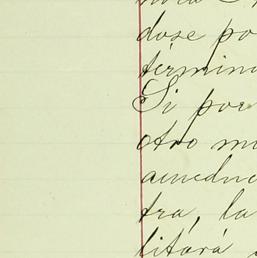 dose po
términ
Si por
otro m
tra, la
litará